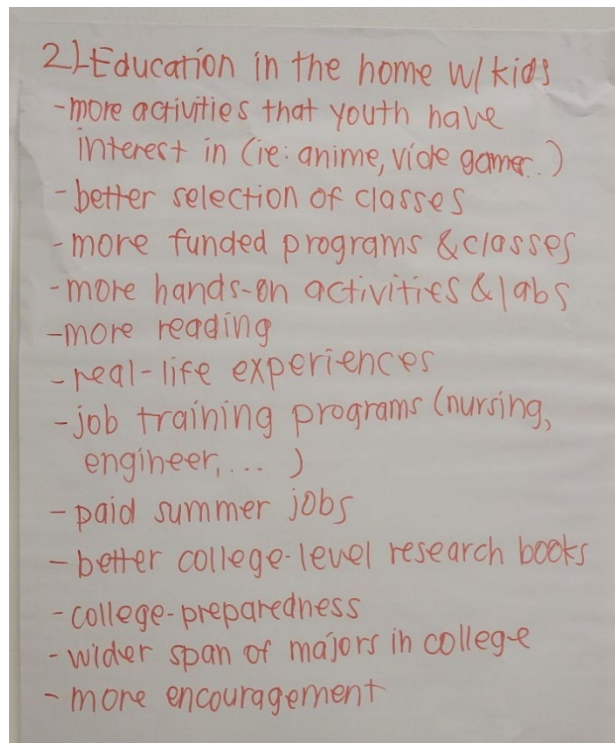 2)-Education in the home w/ kids
-more activities that youth have
interest in (ie: anime, vide games.)
-better selection of classes
-more funded programs & classes
-more hands-on activities & labs
-more reading
-real-life experiences
-job training programs (nursing,
engineer, ... )
-paid summer jobs
-better college-level research books
-college-preparedness
-wider span of majors in college
-more encouragement